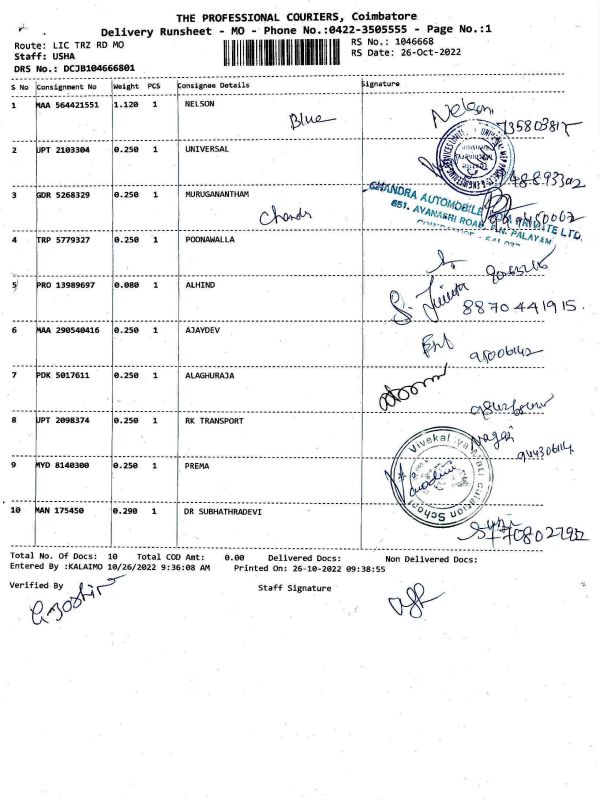 THE PROFESSIONAL COURIERS, Coimbatore
Delivery Runsheet - MO - Phone No.:0422-3505555 - Page No.:1
Route: LIC TRZ RD MO RS No.: 1046668
Staff: USHA RS Date: 26-Oct-2022
DRS No.: DCJB104666801
S No Consignment No Weight PCS Consignee Details Signature
1 MAA 564421551 1.120 1 NELSON Nelson
Blue
2 UPT 2103304 0.250 1 UNIVERSAL
3 GDR 5268329 0.250 1 MURUGANANTHAM CHANDRA AUTOMOBILE INDIA PRIVATE LTD.
651, AVANASHI ROAD, P.N. PALAYAM
4 TRP 5779327 0.250 1 POONAWALLA
5 PRO 13989697 0.080 1 ALHIND
8870441915
6 MAA 290540416 0.250 1 AJAYDEV
7 PDK 5017611 0.250 1 ALAGHURAJA
8 UPT 2098374 0.250 1 RK TRANSPORT
9 MYD 8140300 0.250 1 PREMA
10 MAN 175450 0.290 1 DR SUBHATHRADEVI
Total No. Of Docs: 10 Total COD Amt: 0.00 Delivered Docs: Non Delivered Docs:
Entered By :KALAIMO 10/26/2022 9:36:08 AM Printed On: 26-10-2022 09:38:55
Verified By Staff Signature